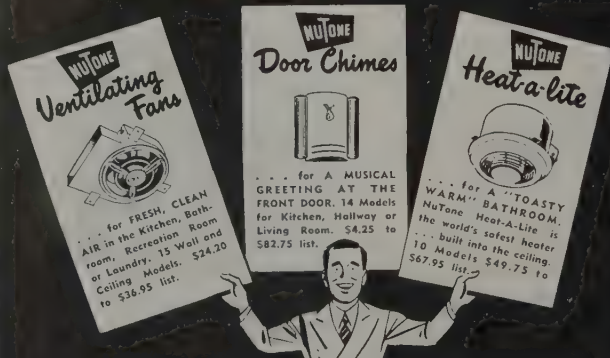 NUTONE
Ventilating
Fans
. . . for FRESH, CLEAN
AIR in the Kitchen, Bath-
room, Recreation Room
or Laundry. 15 Wall and
Ceiling Models. $24.20
to $36.95 list.
NUTONE
Door Chimes
. . . for A MUSICAL
GREETING AT THE
FRONT DOOR. 14 Models
for Kitchen, Hallway or
Living Room. $4.25 to
$82.75 list.
NUTONE
Heat-a-lite
. . . for A "TOASTY
WARM" BATHROOM.
NuTone Heat-A-Lite is
the world's safest heater
. . . built into the ceiling.
10 Models $49.75 to
$67.95 list.